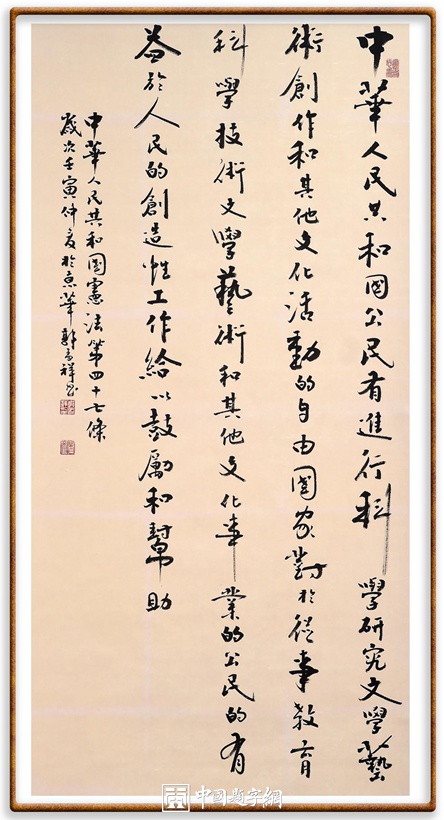 中華人民共和國公民有進行科學研究文學藝
術創作和其他文化活動的自由國家對於從事教育
科學技術文學藝術和其他文化事業的公民的有
益於人民的創造性工作給以鼓勵和幫助
中華人民共和國憲法第四十七條
歲次壬寅仲夏於京華郭祥書
中國題字網